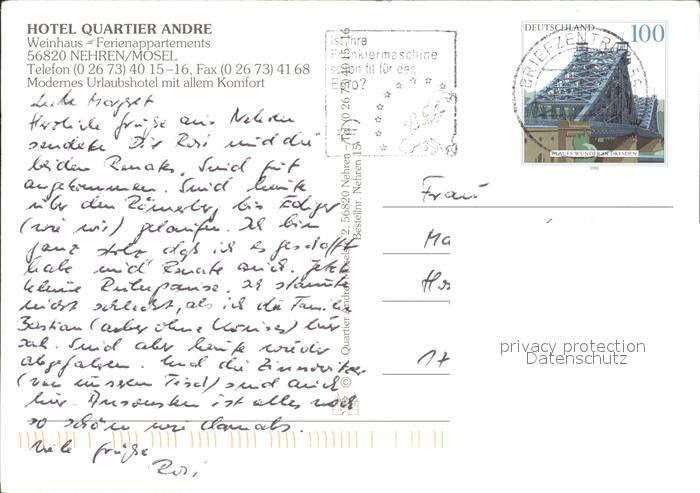 HOTEL QUARTIER ANDRE
Weinhaus - Ferienappartements
56820 NEHREN/MOSEL
Telefon (0 26 73) 40 15-16, Fax (0 26 73) 41 68
Modernes Urlaubshotel mit allem Komfort
Liebe Margret
Herzliche Grüße aus Nehren
sendete Dir Rosi und die
beiden Renates. Sind gut
angekommen. Sind heute
über den Römerberg bis Ediger
(wie wir) gelaufen. Ich bin
ganz stolz daß ich es geschafft
habe und Renate auch. Jetzt
kleine Ruhepause. Ich staunte
nicht schlecht, als ich die Familie
Bastian (aber ohne) hier
sah. Sind aber heute wieder
abgefahren. Und die
(von unserem Tisch) sind auch
hier. Ansonsten ist alles noch
so schön wie damals.
Viele Grüße
Rosi
Ist Ihre
Frankiermaschine
schon fit für den
Euro?
BRIEFZENTRUM 56
DEUTSCHLAND
100
BLAUES WUNDER IN DRESDEN
2000
© Quartier Andre, 2, 56820 Nehren
0 26 73/40 15-16
Bestellnr. Nehren 15
Frau
Ma
17
privacy protection
Datenschutz